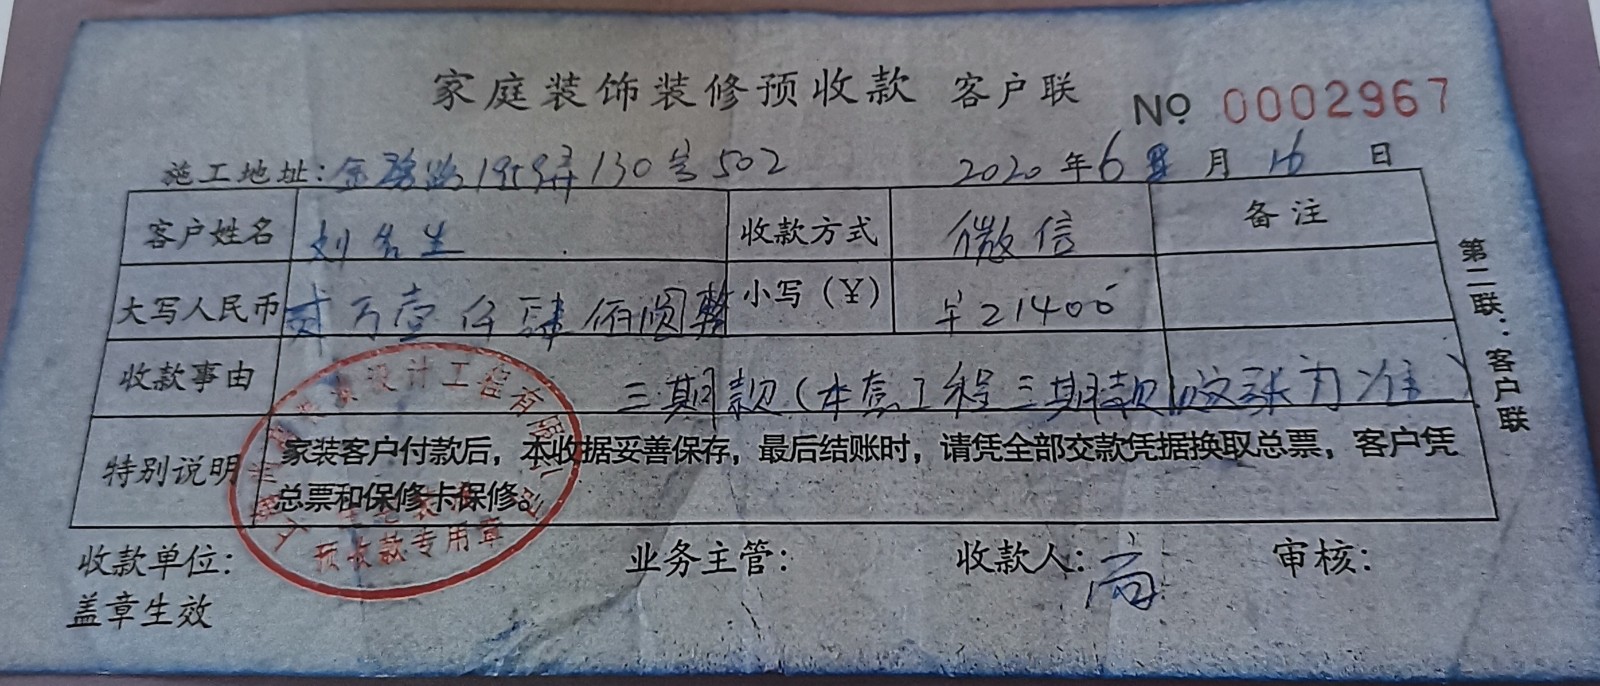 家庭装饰装修预收款 客户联 NO 0002967
施工地址:金 路1959弄130号502 2020年6月16日
客户姓名 刘先生 收款方式 微信 备注
大写人民币 贰万壹仟肆佰圆整 小写(¥) ¥21400
收款事由 三期款(本套工程三期款以这张为准)
特别说明 家装客户付款后,本收据妥善保存,最后结账时,请凭全部交款凭据换取总票,客户凭
总票和保修卡保修。
第二联:客户联
设计工程有限公司
预收款专用章
收款单位: 业务主管: 收款人:高 审核:
盖章生效